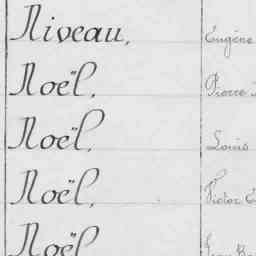 Niveau, Eugène
Noël, Pierre
Noël, Louis
Noël, Victor
Noël